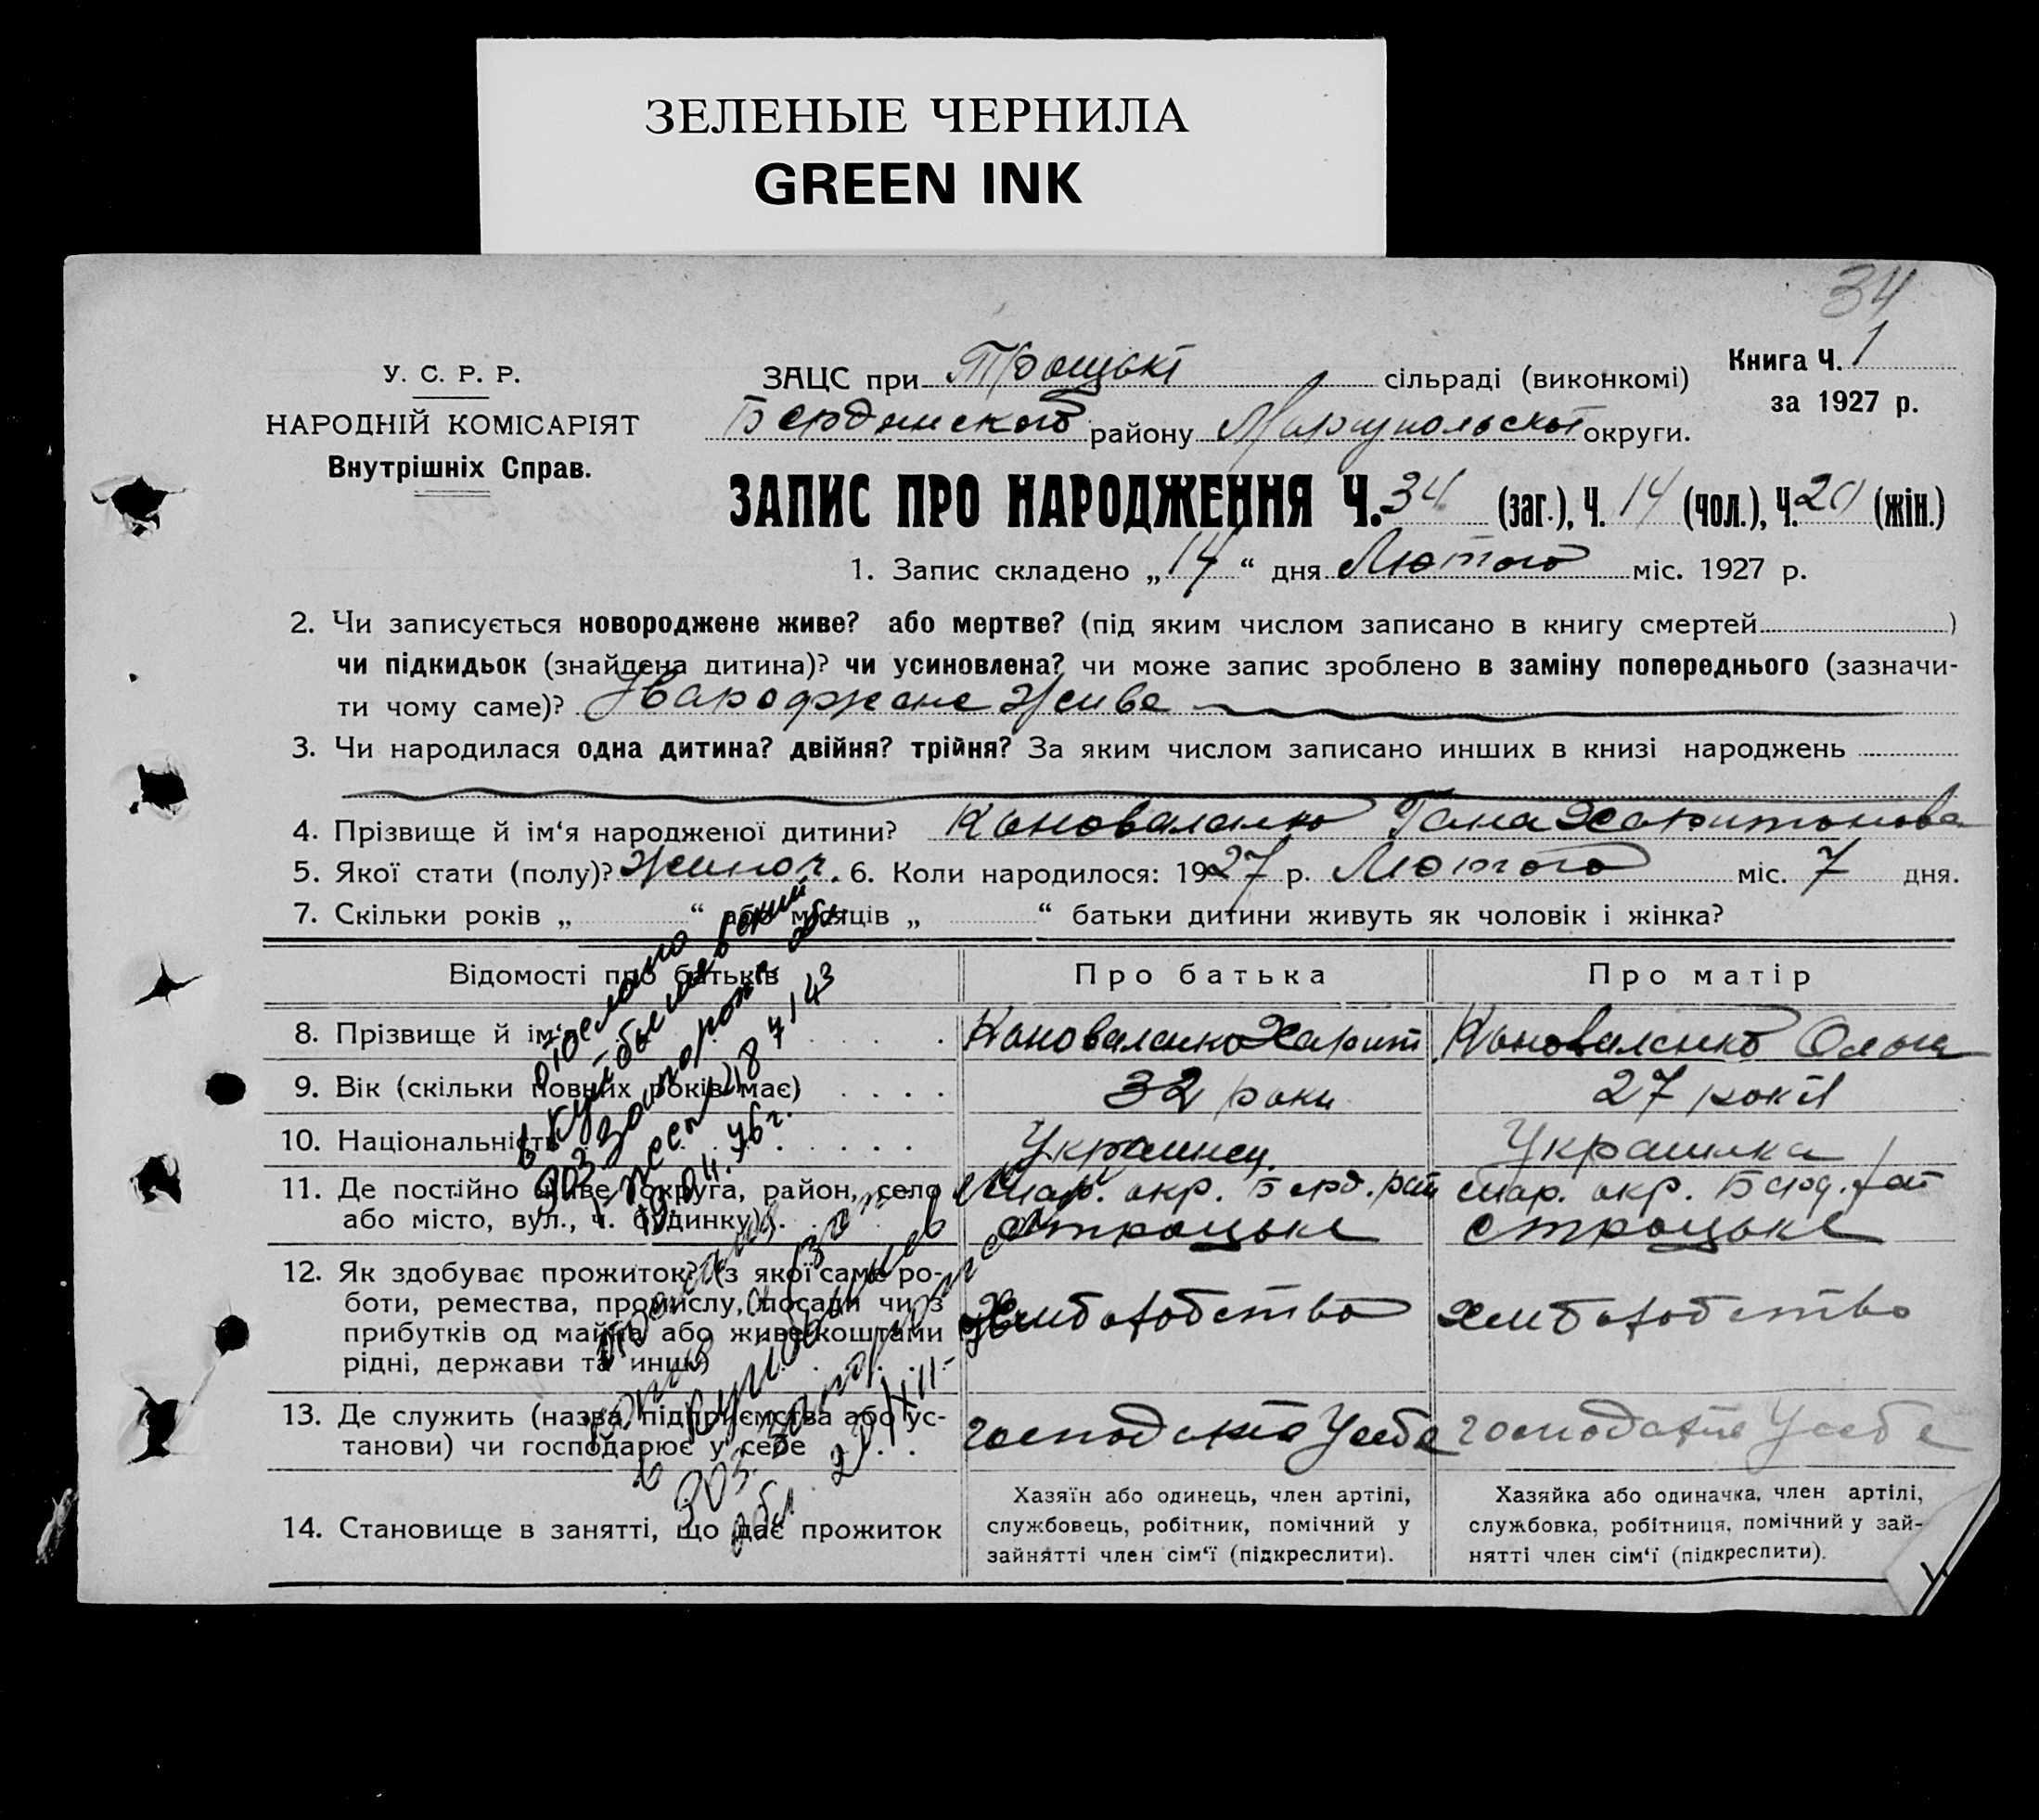 ЗЕЛЕНЫЕ ЧЕРНИЛА
GREEN INK
34
У. С. Р. Р.
НАРОДНІЙ КОМІСАРІЯТ
Внутрішніх Справ.
ЗАЦС при Троцькі сільраді (виконкомі)
Книга Ч. 1
за 1927 р.
Бердянского району Маріупольскої округи.
ЗАПИС ПРО НАРОДЖЕННЯ Ч. 34 (заг.), Ч. 14 (чол.), Ч. 20 (жін.)
1. Запис складено „14“ дня Лютого міс. 1927 р.
2. Чи записується новороджене живе? або мертве? (під яким числом записано в книгу смертей )
чи підкидьок (знайдена дитина)? чи усиновлена? чи може запис зроблено в заміну попереднього (зазначи-
ти чому саме)? Нвароджене Живе
3. Чи народилася одна дитина? двійня? трійня? За яким числом записано инших в книзі народжень
4. Прізвище й ім‘я народженої дитини? Коноваленко Гана Харитонова
5. Якої стати (полу)? Жиноч. 6. Коли народилося: 1927 р. Лютого міс. 7 дня.
7. Скільки років „ “ або місяців „ “ батьки дитини живуть як чоловік і жінка?
Відомості про батьків Про батька Про матір
8. Прізвище й ім‘я Коноваленко Харит Коноваленко Ольга
9. Вік (скільки повних років має) 32 роки 27 років
10. Національність Украинец. Украинка
11. Де постійно живе (округа, район, село Мар. окр. Берд. рай Мар. окр. Берд. рай
або місто, вул., ч. будинку) строцьке строцьке
12. Як здобуває прожиток? (з якої саме ро-
боти, ремества, промислу, посади чи з Хлиборобство Хлиборобство
прибутків од майна або живе коштами
рідні, держави та инш.)
13. Де служить (назва підприємства або ус-
танови) чи господарює у себе господарює Усебе господарює Усебе
14. Становище в занятті, що дає прожиток
Хазяїн або одинець, член артілі,
службовець, робітник, помічний у
зайнятті член сім‘ї (підкреслити).
Хазяйка або одиначка, член артілі,
службовка, робітниця, помічний у зай-
нятті член сім‘ї (підкреслити).
отослано
в Куйбышевский
Запорож. обл.
19.04.76г.
в Куйбышев